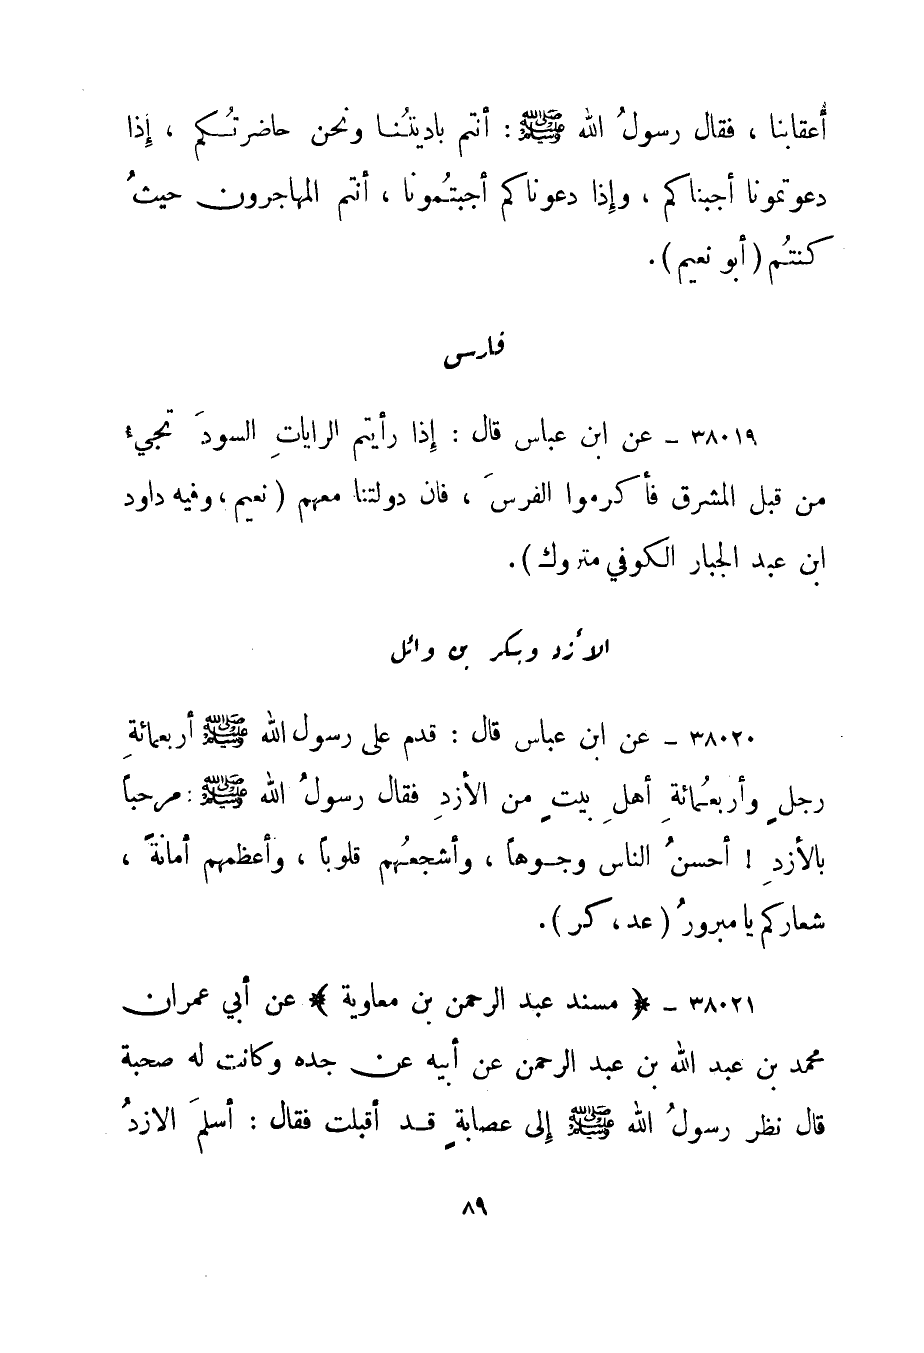 أعقابنا ، فقال رسولُ الله ﷺ : أنتم باديتُنا ونحن حاضرتُكم ، إذا
دعوتمونا أجبناكم ، وإذا دعوناكم أجبتُمونا ، أنتم المهاجرون حيثُ
كنتُم ( أبو نعيم ) .
فارس
٣٨٠١٩ - عن ابن عباس قال : إذا رأيتم الراياتِ السودَ تجيء
من قبل المشرق فأكرموا الفرسَ ، فان دولتنا معهم ( نعيم ، وفيه داود
ابن عبد الجبار الكوفي متروك ) .
الأزد وبكر بن وائل
٣٨٠٢٠ - عن ابن عباس قال : قدم على رسول الله ﷺ أربعمائةِ
رجلٍ وأربعُمائةِ أهلِ بيتٍ من الأزدِ فقال رسولُ الله ﷺ : مرحباً
بالأزدِ ! أحسنُ الناس وجوهاً ، وأشجعُهم قلوباً ، وأعظمهم أمانةً ،
شعاركم يا مبرورُ ( عد ، كر ) .
٣٨٠٢١ - ﴿ مسند عبد الرحمن بن معاوية ﴾ عن أبي عمران
محمد بن عبد الله بن عبد الرحمن عن أبيه عن جده وكانت له صحبة
قال نظر رسولُ الله ﷺ إلى عصابةٍ قد أقبلت فقال : أسلمَ الازدُ
٨٩